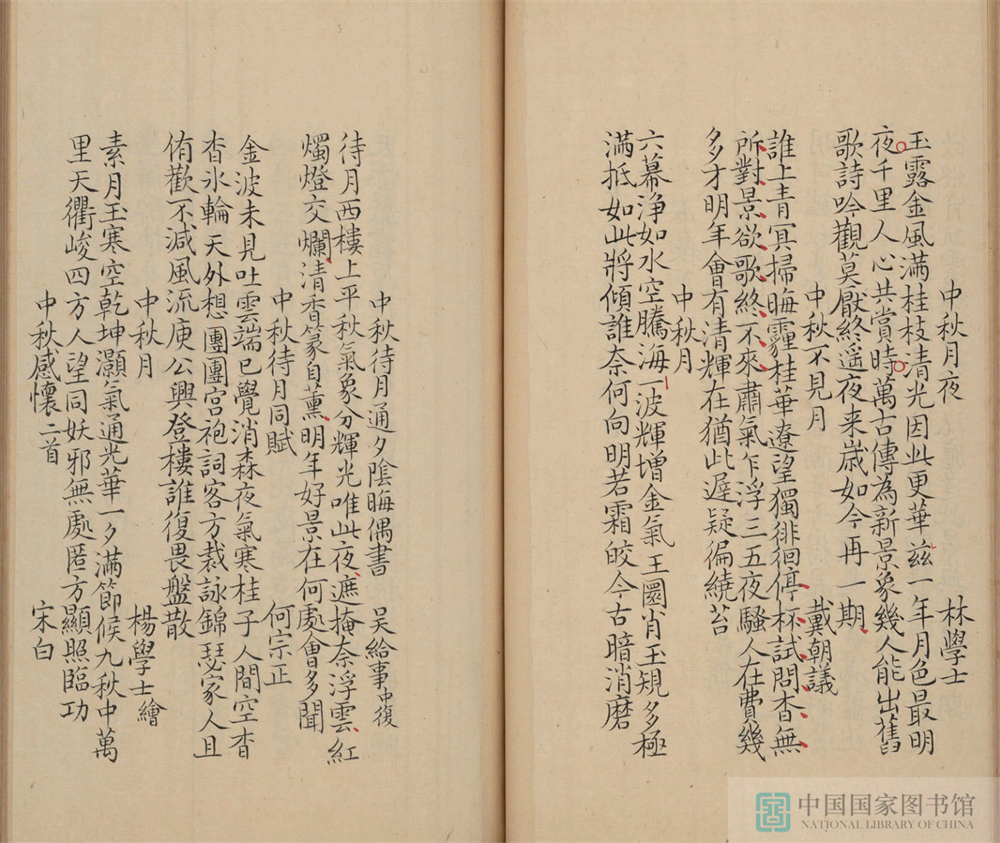 中秋月夜　林學士
玉露金風滿桂枝清光因此更華兹一年月色最明
夜千里人心共賞時萬古傳為新景象幾人能出舊
歌詩吟觀莫厭終遥夜来歲如今再一期
中秋不見月　戴朝議
誰上青冥掃晦霾桂華遼望獨徘徊停杯試問杳無
所對景欲歌終不來肅氣乍浮三五夜騷人在費幾
多才明年會有清輝在猶此遲疑徧繞苔
中秋月
六幕浄如水空騰海一波輝增金氣王圓肖玉規多極
滿抵如此將傾誰奈何向明若霜皎今古暗消磨
中秋待月通夕陰晦偶書　吴給事中復
待月西樓上平秋氣象分輝光唯此夜遮掩奈浮雲紅
燭燈交爛清香篆自薰明年好景在何處會多聞
中秋待月同賦　何宗正
金波未見吐雲端已覺消森夜氣寒桂子人間空杳
杳氷輪天外想團團宮袍詞客方裁詠錦瑟家人且
侑歡不減風流庾公興登樓誰復畏盤散
中秋月　楊學士繪
素月玉寒空乾坤灝氣通光華一夕滿節候九秋中萬
里天衢峻四方人望同妖邪無處匿方顯照臨功
中秋感懷二首　宋白
中国国家图书馆
NATIONAL LIBRARY OF CHINA